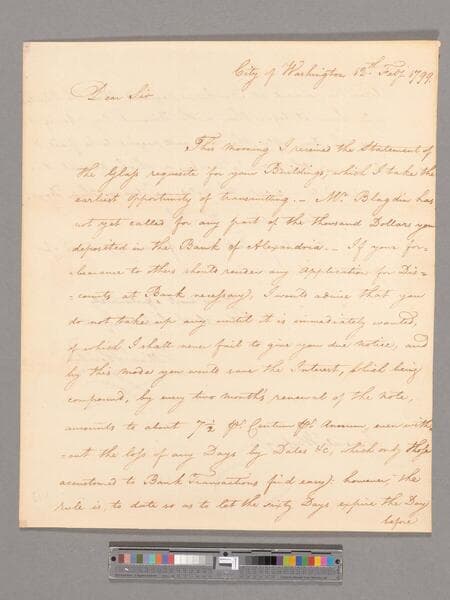 City of Washington 12th Feby 1799.
Dear Sir
This Morning I received the Statement of
the Glass requisite for your Buildings, which I take the
earliest opportunity of transmitting. – Mr. Blagdin has
not yet called for any part of the thousand Dollars you
deposited in the Bank of Alexandria. – If your for-
-bearance to others should render any application for Dis=
=counts at Bank necessary, I would advise that you
do not take up any until it is immediately wanted,
of which I shall never fail to give you due notice, and
by this mode you would save the Interest, which being
compound, by every two month's renewal of the note,
amounts to about 7½ Pr Centum Pr Annum, even with=
=out the loss of any Days by Dates &c, which only those
accustomed to Bank Transactions find easy: however, the
rule is, to date so as to let the sixty Days expire the Day
before